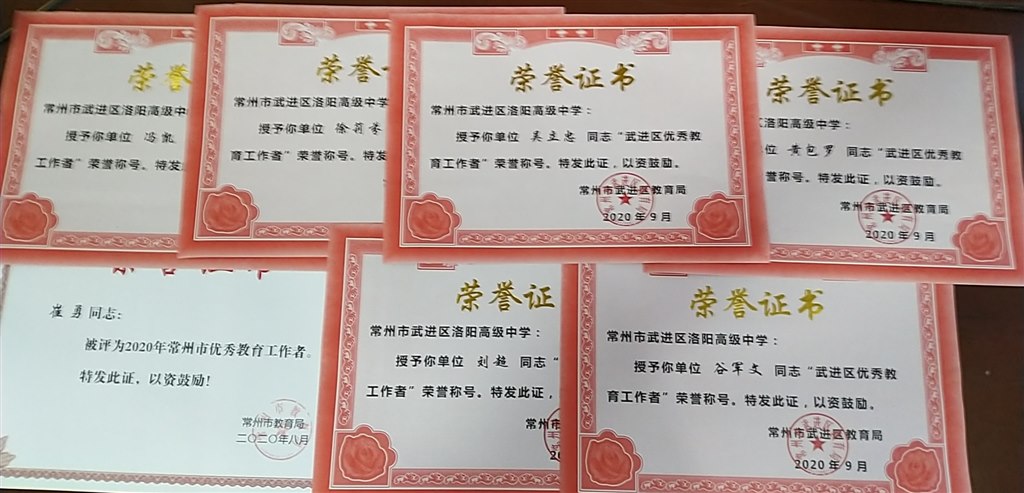 荣誉
常州市武进区洛阳高级中
授予你单位 冯凯
工作者”荣誉称号。特发
荣誉
常州市武进区洛阳高级中学
授予你单位 徐莉芳
工作者”荣誉称号。特发
荣誉证书
常州市武进区洛阳高级中学：
授予你单位 吴立忠 同志“武进区优秀教
育工作者”荣誉称号。特发此证，以资鼓励。
常州市武进区教育局
2020年9月
荣誉证书
洛阳高级中学：
位 黄包罗 同志“武进区优秀教
誉称号。特发此证，以资鼓励。
常州市武进区教育局
2020年9月
崔勇同志：
被评为2020年常州市优秀教育工作者。
特发此证，以资鼓励！
常州市教育局
二〇二〇年八月
荣誉证
常州市武进区洛阳高级中学：
授予你单位 刘超 同志“
工作者”荣誉称号。特发此证，
常州
荣誉证书
常州市武进区洛阳高级中学：
授予你单位 谷军文 同志“武进区优秀教
育工作者”荣誉称号。特发此证，以资鼓励。
常州市武进区教育局
2020年9月